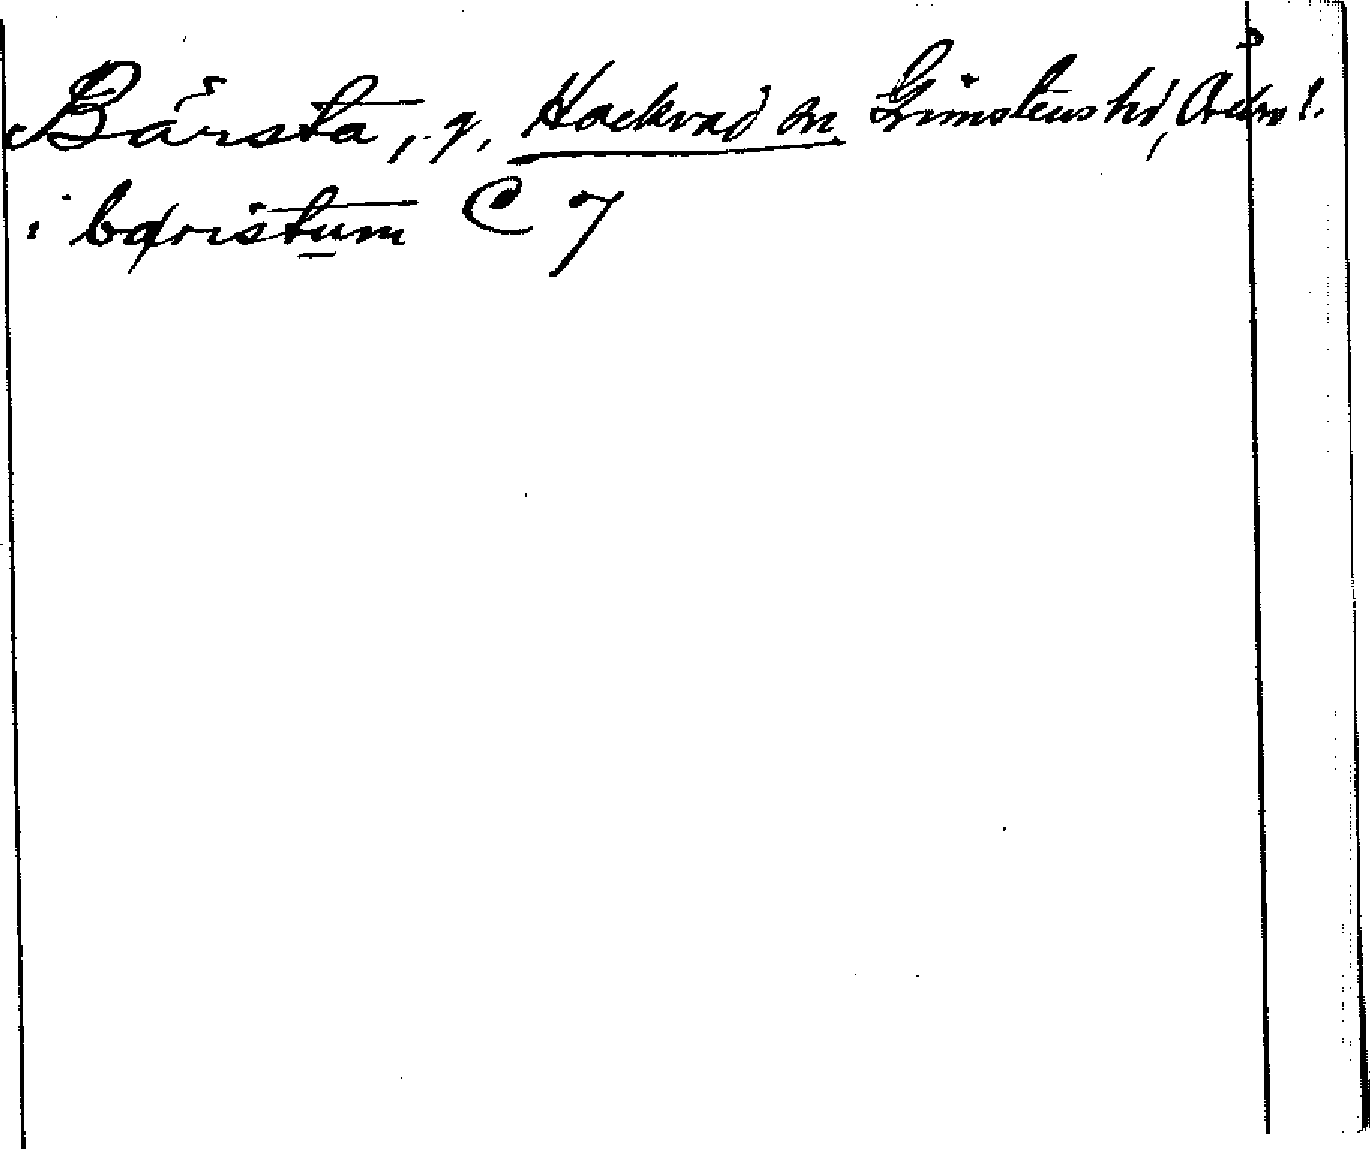 Bärsta, g, Hackvad sn Grimstens hd, Örebro l.
i børistum C 7